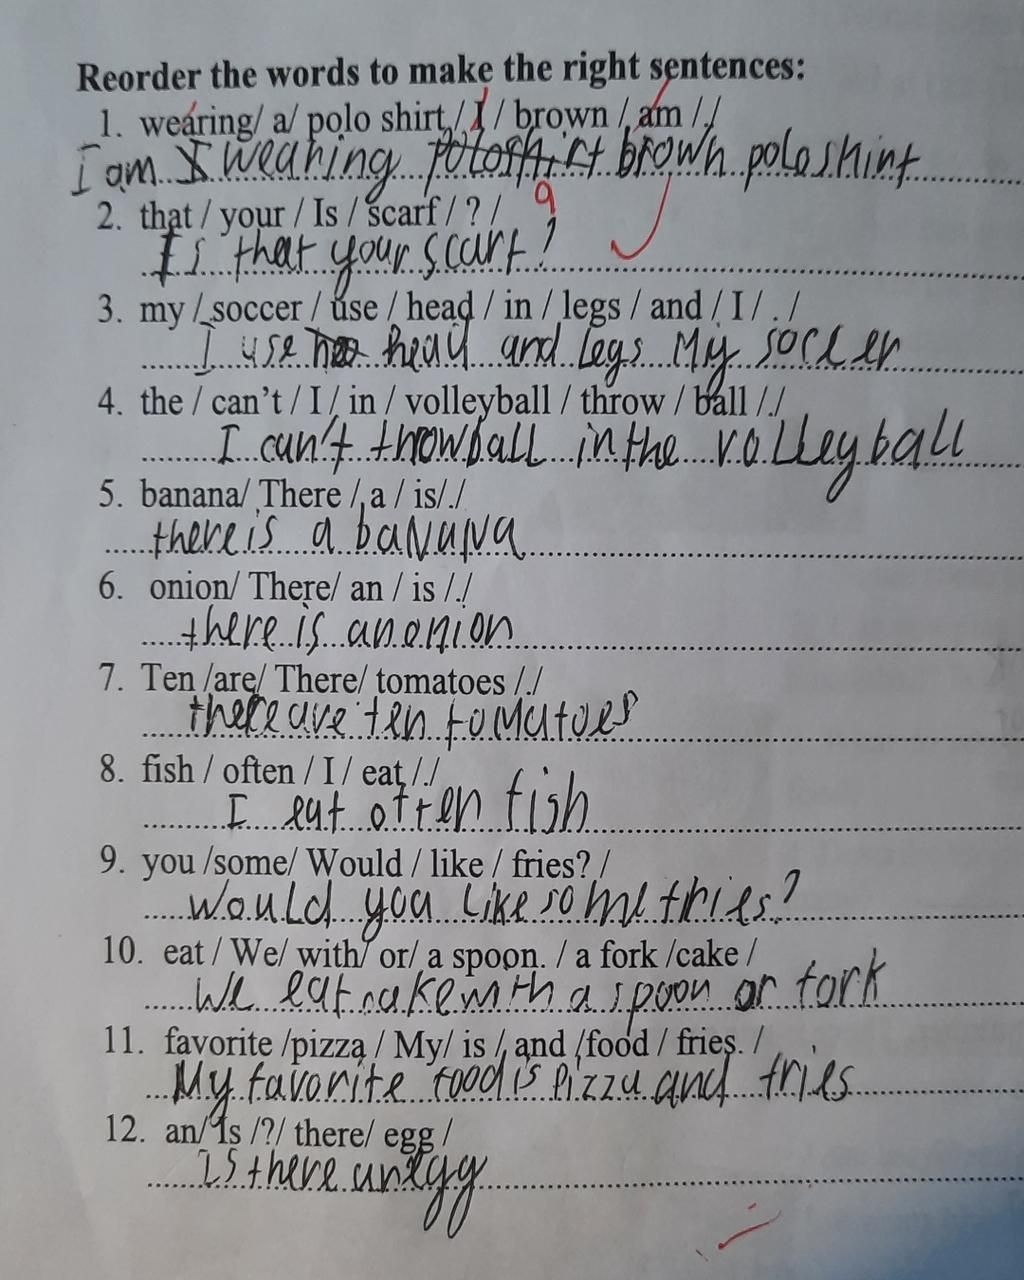 Reorder the words to make the right sentences:
1. wearing/ a/ polo shirt / I / brown / am /./
I am I wearing poloshirt brown polo shint
a
2. that / your / Is / scarf / ? /
Is that your scarf?
3. my / soccer / use / head / in / legs / and / I / . /
I use head and legs My soccer
4. the / can't / I / in / volleyball / throw / ball /./
I can't throw ball in the volleyball
5. banana/ There / a / is/./
there is a baNaNa
6. onion/ There/ an / is /./
there is an onion
7. Ten /are/ There/ tomatoes /./
there are ten tomatoes
8. fish / often / I / eat /./
I eat often fish
9. you /some/ Would / like / fries? /
would you like some fries?
10. eat / We/ with/ or/ a spoon. / a fork /cake /
We eat cake with a spoon or fork
11. favorite /pizza / My/ is / and /food / fries. /
My favorite food is pizza and fries
12. an/ Is /?/ there/ egg /
is there an egg